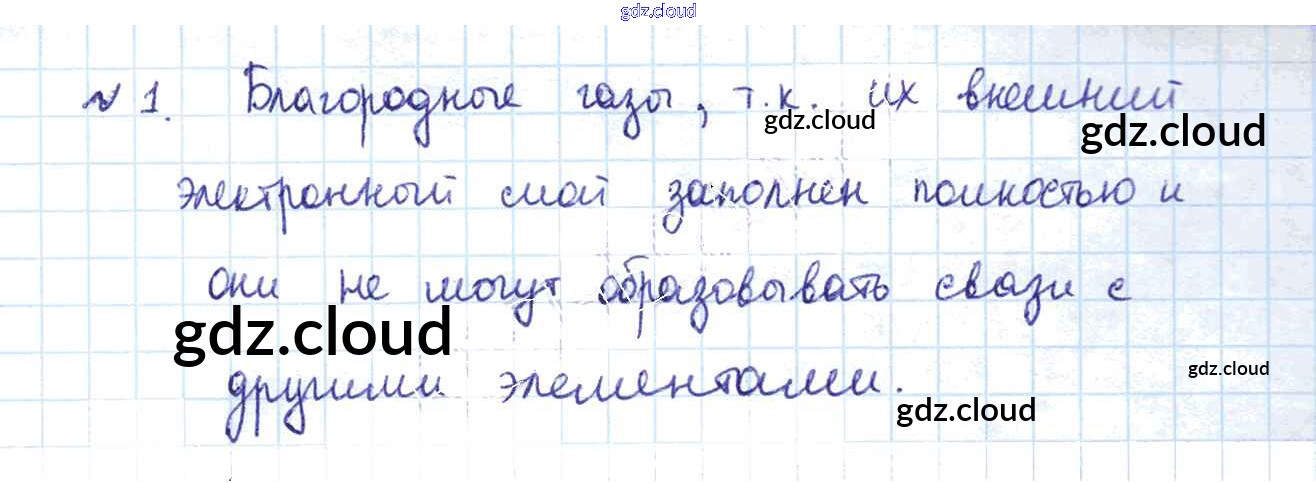 gdz.cloud
№ 1. Благородные газы, т.к. их внешний
gdz.cloud
gdz.cloud
электронный слой заполнен полностью и
они не могут образовывать связи с
gdz.cloud
другими элементами.
gdz.cloud
gdz.cloud